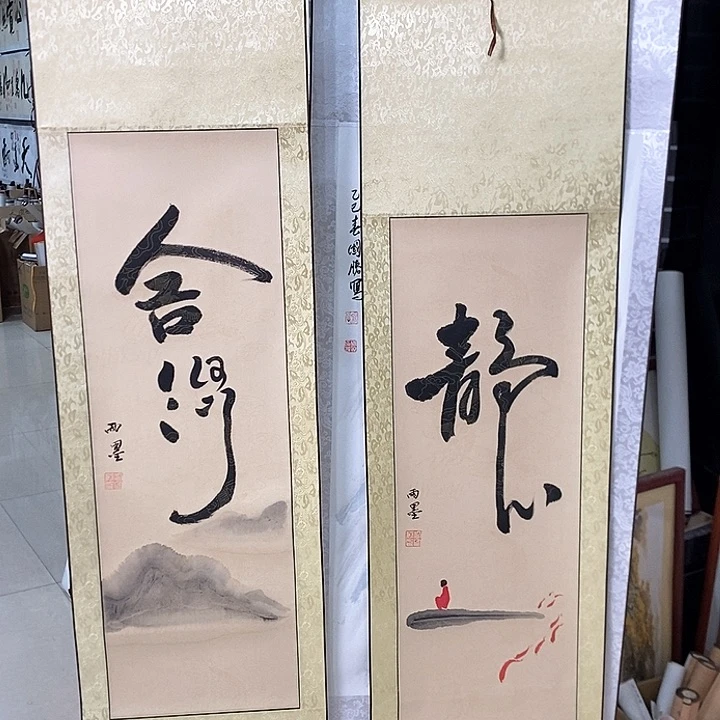 舍得
雨墨
乙巳春
寫
静心
雨墨